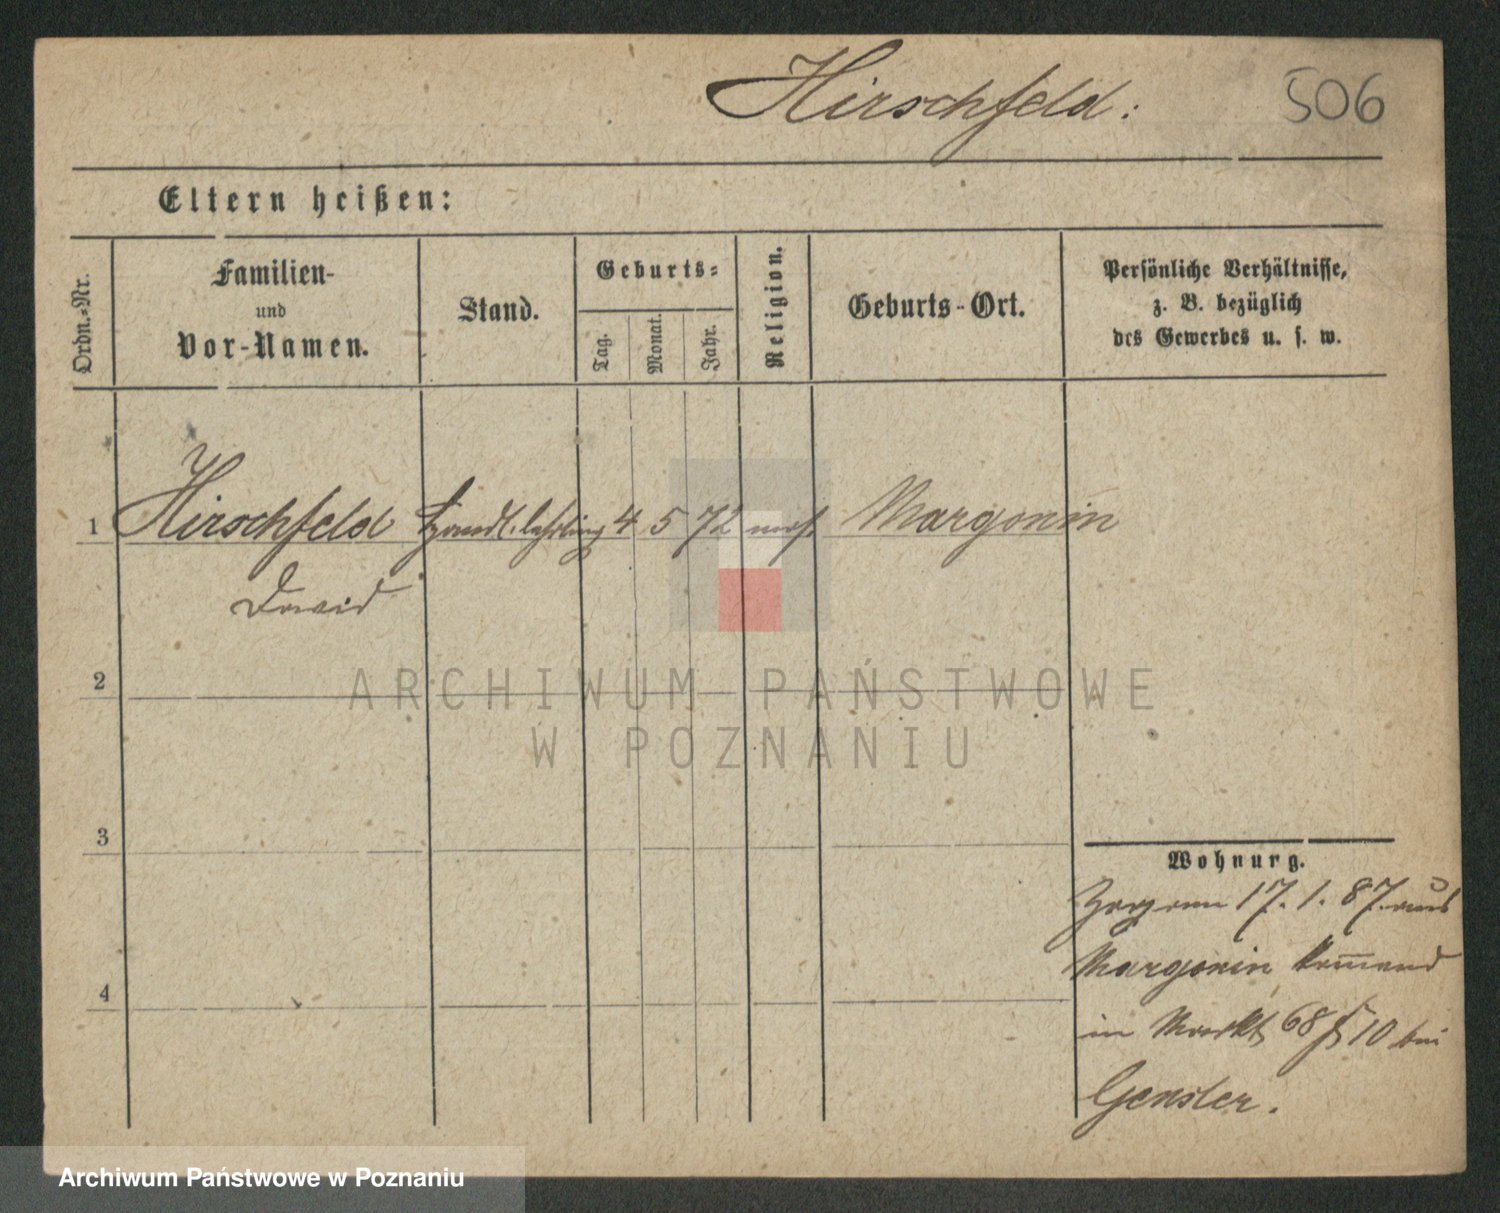 Hirschfeld:
506
Eltern heißen:
Ordn.-Nr.
Familien-
und
Vor-Namen.
Stand.
Geburts-
Tag.
Monat.
Jahr.
Religion.
Geburts-Ort.
Persönliche Verhältnisse,
z. B. bezüglich
des Gewerbes u. s. w.
1 Hirschfeld Handl. lehrling 4 5 72 mos. Margonin
David
2
ARCHIWUM PAŃSTWOWE
W POZNANIU
3
Wohnung.
17. 1. 87. aus
Margonin kommend
in Markt 68 10 bei
4
Gensler.
Archiwum Państwowe w Poznaniu